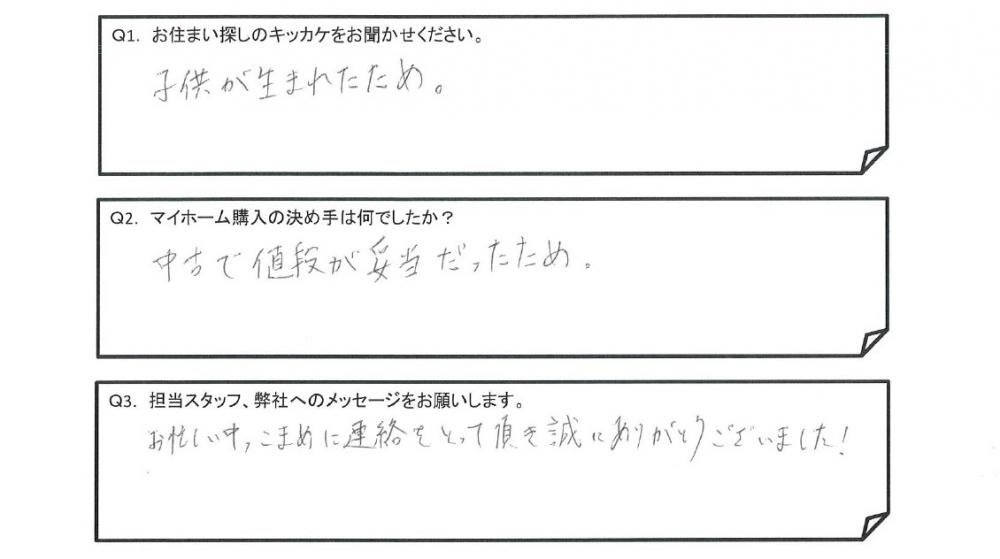 Q1. お住まい探しのキッカケをお聞かせください。
子供が生まれたため。
Q2. マイホーム購入の決め手は何でしたか？
中古で値段が妥当だったため。
Q3. 担当スタッフ、弊社へのメッセージをお願いします。
お忙しい中、こまめに連絡をとって頂き誠にありがとうございました！